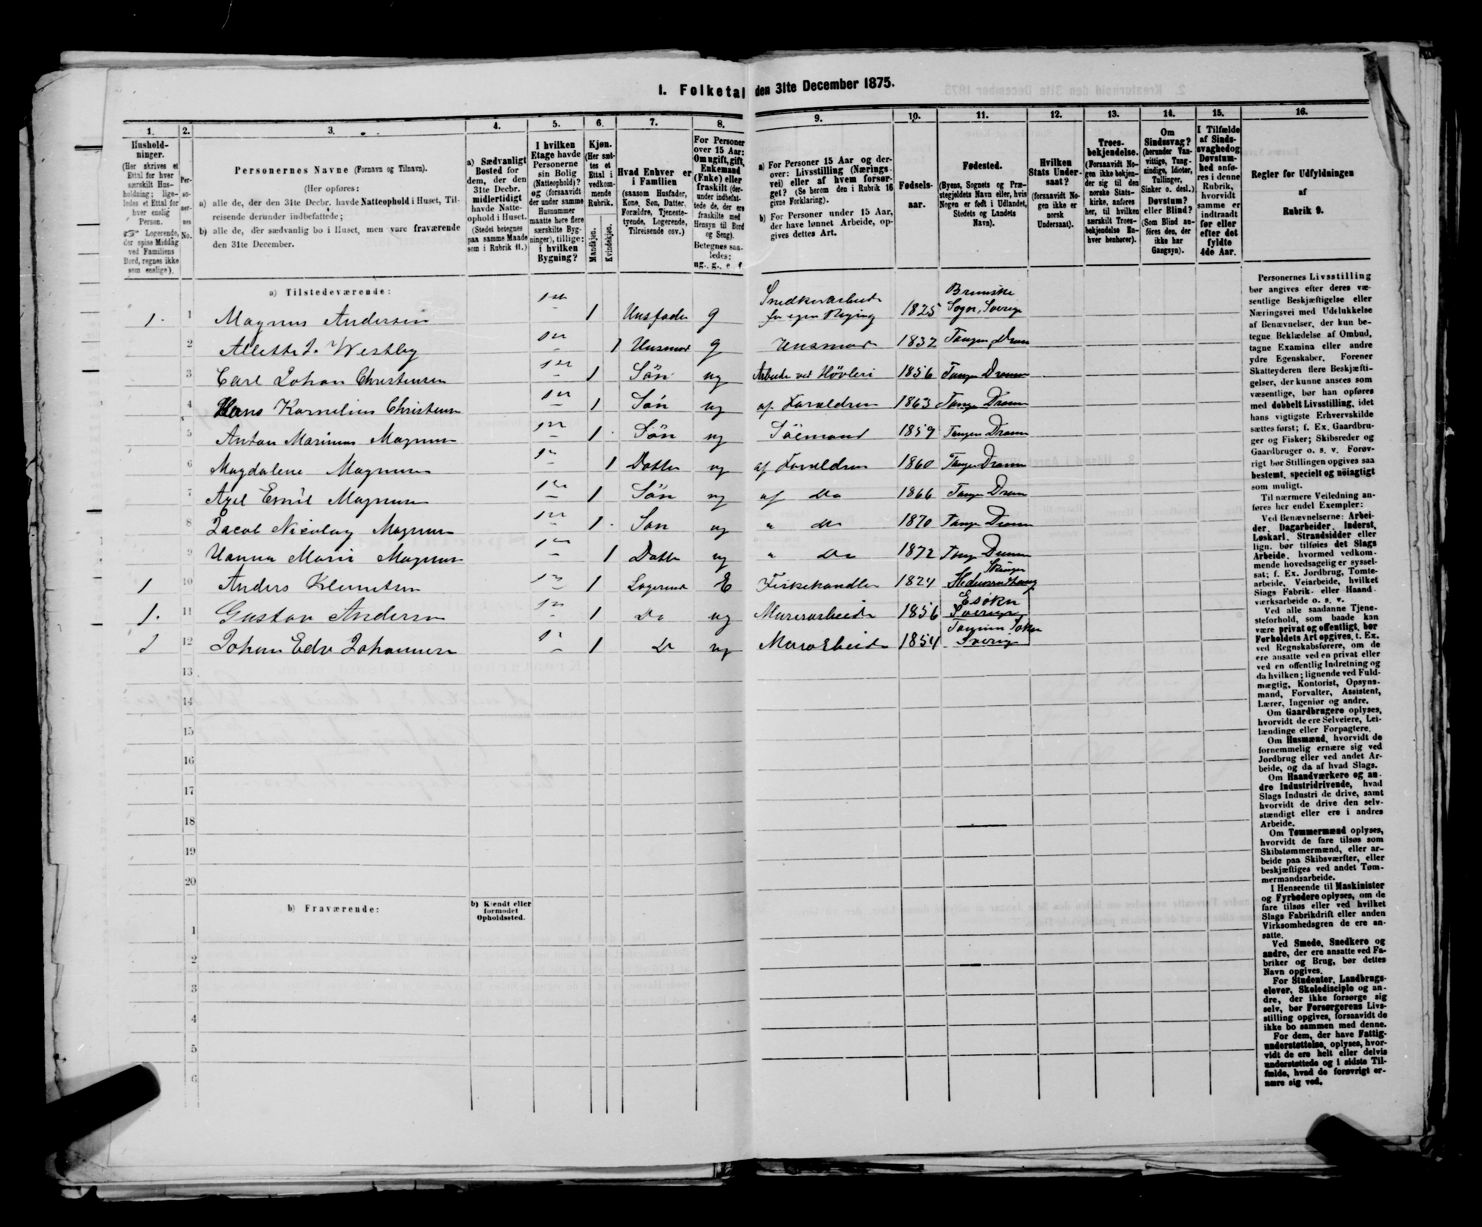 1. Folketal den 31te December 1875.
1. 2. 3. 4. 5. 6. 7. 8. 9. 10. 11. 12. 13. 14. 15. 16.
Hushold-
ninger.
(Her skrives et
Ettal for hver
særskilt Hus-
holdning; lige-
ledes et Ettal for
hver enslig
Person.
Logerende,
der spise Middag
ved Familiens
Bord, regnes ikke
som enslige).
Per-
so-
ner-
nes
No.
Personernes Navne (Fornavn og Tilnavn).
(Her opføres:
a) alle de, der den 31te Decbr. havde Natteophold i Huset, Til-
reisende derunder indbefattede;
b) alle de, der sædvanlig bo i Huset, men vare fraværende
den 31te December.
a) Sædvanligt
Bosted for
dem, der den
31te Decbr.
midlertidigt
havde Natte-
ophold i Huset.
(Stedet betegnes
paa samme Maade
som i Rubrik 11.)
I hvilken
Etage havde
Personerne
sin Bolig
(Natteophold)?
og (forsaavidt
der under samme
Husnummer
maatte høre flere
særskilte Byg-
ninger), tillige:
i hvilken
Bygning?
Kjøn.
(Her sæt-
tes et
Ettal i
vedkom-
mende
Rubrik.
Mandkjøn.
Kvindekjøn.
Hvad Enhver er
i Familien
(saasom Husfader,
Kone, Søn, Datter,
Forældre, Tjeneste-
tyende, Logerende,
Tilreisende osv.)
For Personer
over 15 Aar:
Om ugift, gift,
Enkemand
(Enke) eller
fraskilt (der-
under indbefat-
tede de, der ere
fraskilte med
Hensyn til Bord
og Seng).
Betegnes saa-
ledes:
ug., g., e., f.
a) For Personer 15 Aar og der-
over: Livsstilling (Nærings-
vei) eller af hvem forsør-
get? (Se herom den i Rubrik 16
givne Forklaring).
b) For Personer under 15 Aar,
der have lønnet Arbeide, op-
gives dettes Art.
Fødsels-
aar.
Fødested.
(Byens, Sognets og Præ-
stegjeldets Navn eller, hvis
Nogen er født i Udlandet,
Stedets og Landets
Navn).
Hvilken
Stats Under-
saat?
(forsaavidt No-
gen ikke er
norsk
Undersaat).
Troes-
bekjendelse.
(Forsaavidt No-
gen ikke bekjen-
der sig til den
norske Stats-
kirke, anføres
her, til hvilken
særskilt Troes-
bekjendelse En-
hver henhører).
Om
Sindssvag?
(herunder Van-
vittige, Tung-
sindige, Idioter,
Tullinger,
Sinker o. desl.)
Døvstum?
eller Blind?
(Som Blind an-
føres den, der
ikke har
Gangsyn).
I Tilfælde
af Sinds-
svaghed og
Døvstum-
hed anfø-
res i denne
Rubrik,
hvorvidt
samme er
indtraadt
før eller
efter det
fyldte
4de Aar.
Regler for Udfyldningen
af
Rubrik 9.
a) Tilstedeværende:
1. 1 Magnus Andersen 1 Husfader g Snedkerarbeide for egen Regning 1825 Sogn, Sverig
2 1 Husmod g Husmod 1832 Tangen Dram
3 Carl Johan Christensen 1 Søn ug Arbeide ved Høvleri 1856 Tangen Dram
4 Hans Kornelius Christensen 1 Søn ug af Forældren 1863 Tangen Dram
5 Anton Marinius Magnusen 1 Søn ug Sømand 1859 Tangen Dram
6 Magdalene Magnusen 1 Datter ug af Forældren 1860 Tangen Dram
7 Axel Emil Magnusen 1 Søn ug af Do 1866 Tangen Dram
8 Jacob Nicolay Magnusen 1 Søn ug " do 1870 Tangen Dram
9 Hanna Marie Magnusen 1 Datter ug " Do 1872 Tangen Dram
1 10 Anders Klemetsen 1 Logerend E Fiskehandler 1824
1. 11 Gustav Andersen 1 Do ug Murerarbeide 1856 Sverige
1 12 Johan Edv Johannesen 1 Do ug Murarbeide 1854 Sverig
13
14
15
16
17
18
19
20
b) Fraværende:
b) Kjendt eller
formodet
Opholdssted.
1
2
3
4
5
6
Personernes Livsstilling
bør angives efter deres væ-
sentlige Beskjæftigelse eller
Næringsvei med Udelukkelse
af Benævnelser, der kun be-
tegne Beklædelse af Ombud,
tagne Examina eller andre
ydre Egenskaber. Forener
Skatteyderen flere Beskjæfti-
gelser, der kunne ansees som
væsentlige, bør han opføres
med dobbelt Livsstilling, idet
hans vigtigste Erhvervskilde
sættes først; f. Ex. Gaardbru-
ger og Fisker; Skibsreder og
Gaardbruger o. s. v. Forøv-
rigt bør Stillingen opgives saa
bestemt, specielt og nøiagtigt
som muligt.
Til nærmere Veiledning an-
føres her endel Exempler:
Ved Benævnelserne: Arbei-
der, Dagarbeider, Inderst,
Løskarl, Strandsidder eller
lign. bør tilføies det Slags
Arbeide, hvormed vedkom-
mende hovedsagelig er syssel-
sat; f. Ex. Jordbrug, Tomte-
arbeide, Veiarbeide, hvilket
Slags Fabrik- eller Haand-
værksarbeide o. s. v.
Ved alle saadanne Tjene-
steforhold, som baade kan
være privat og offentligt, bør
Forholdets Art opgives, f. Ex.
ved Regnskabsførere, om de
ere ansatte ved en privat eller
ved en offentlig Indretning og
da hvilken; lignende ved Fuld-
mægtig, Kontorist, Opsyns-
mand, Forvalter, Assistent,
Lærer, Ingeniør og andre.
Om Gaardbrugere oplyses,
hvorvidt de ere Selveiere, Lei-
lændinge eller Forpagtere.
Om Husmænd, hvorvidt de
fornemmelig ernære sig ved
Jordbrug eller ved andet Ar-
beide, og da af hvad Slags.
Om Haandværkere og an-
dre Industridrivende, hvad
Slags Industri de drive, samt
hvorvidt de drive den selv-
stændigt eller ere i andres
Arbeide.
Om Tømmermænd oplyses,
hvorvidt de fare tilsøs som
Skibstømmermænd, eller ar-
beide paa Skibsværfter, eller
beskjæftiges ved andet Tøm-
mermandsarbeide.
I Henseende til Maskinister
og Fyrbødere oplyses, om de
fare tilsøs eller ved hvilket
Slags Fabrikdrift eller anden
Virksomhedsgren de ere an-
satte.
Ved Smede, Snedkere og
andre, der ere ansatte ved Fa-
briker og Brug, bør dettes
Navn opgives.
For Studenter, Landbrugs-
elever, Skoledisciple og an-
dre, der ikke forsørge sig
selv, bør Forsørgerens Livs-
stilling opgives, forsaavidt de
ikke bo sammen med denne.
For dem, der have Fattig-
understøttelse, oplyses, hvor-
vidt de ere helt eller delvis
understøttede og i sidste Til-
fælde, hvad de forøvrigt er-
nære sig ved.